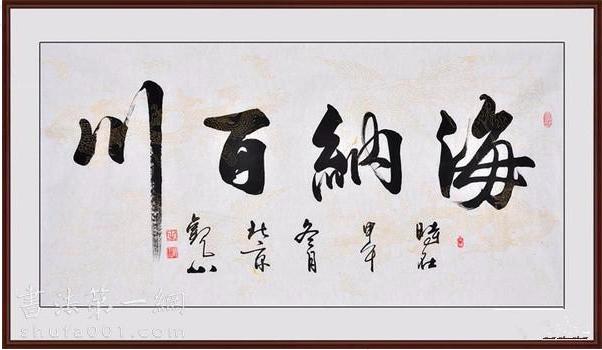 海納百川
時在
甲午
冬月
北京
觀山
書法第一網
shufa001.com